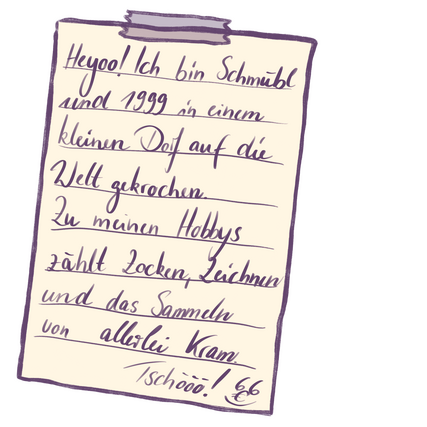 Heyoo! Ich bin Schmubl
und 1999 in einem
kleinen Dorf auf die
Welt gekrochen.
Zu meinen Hobbys
zählt Zocken, Zeichnen
und das Sammeln
von allerlei Kram.
Tschööö!